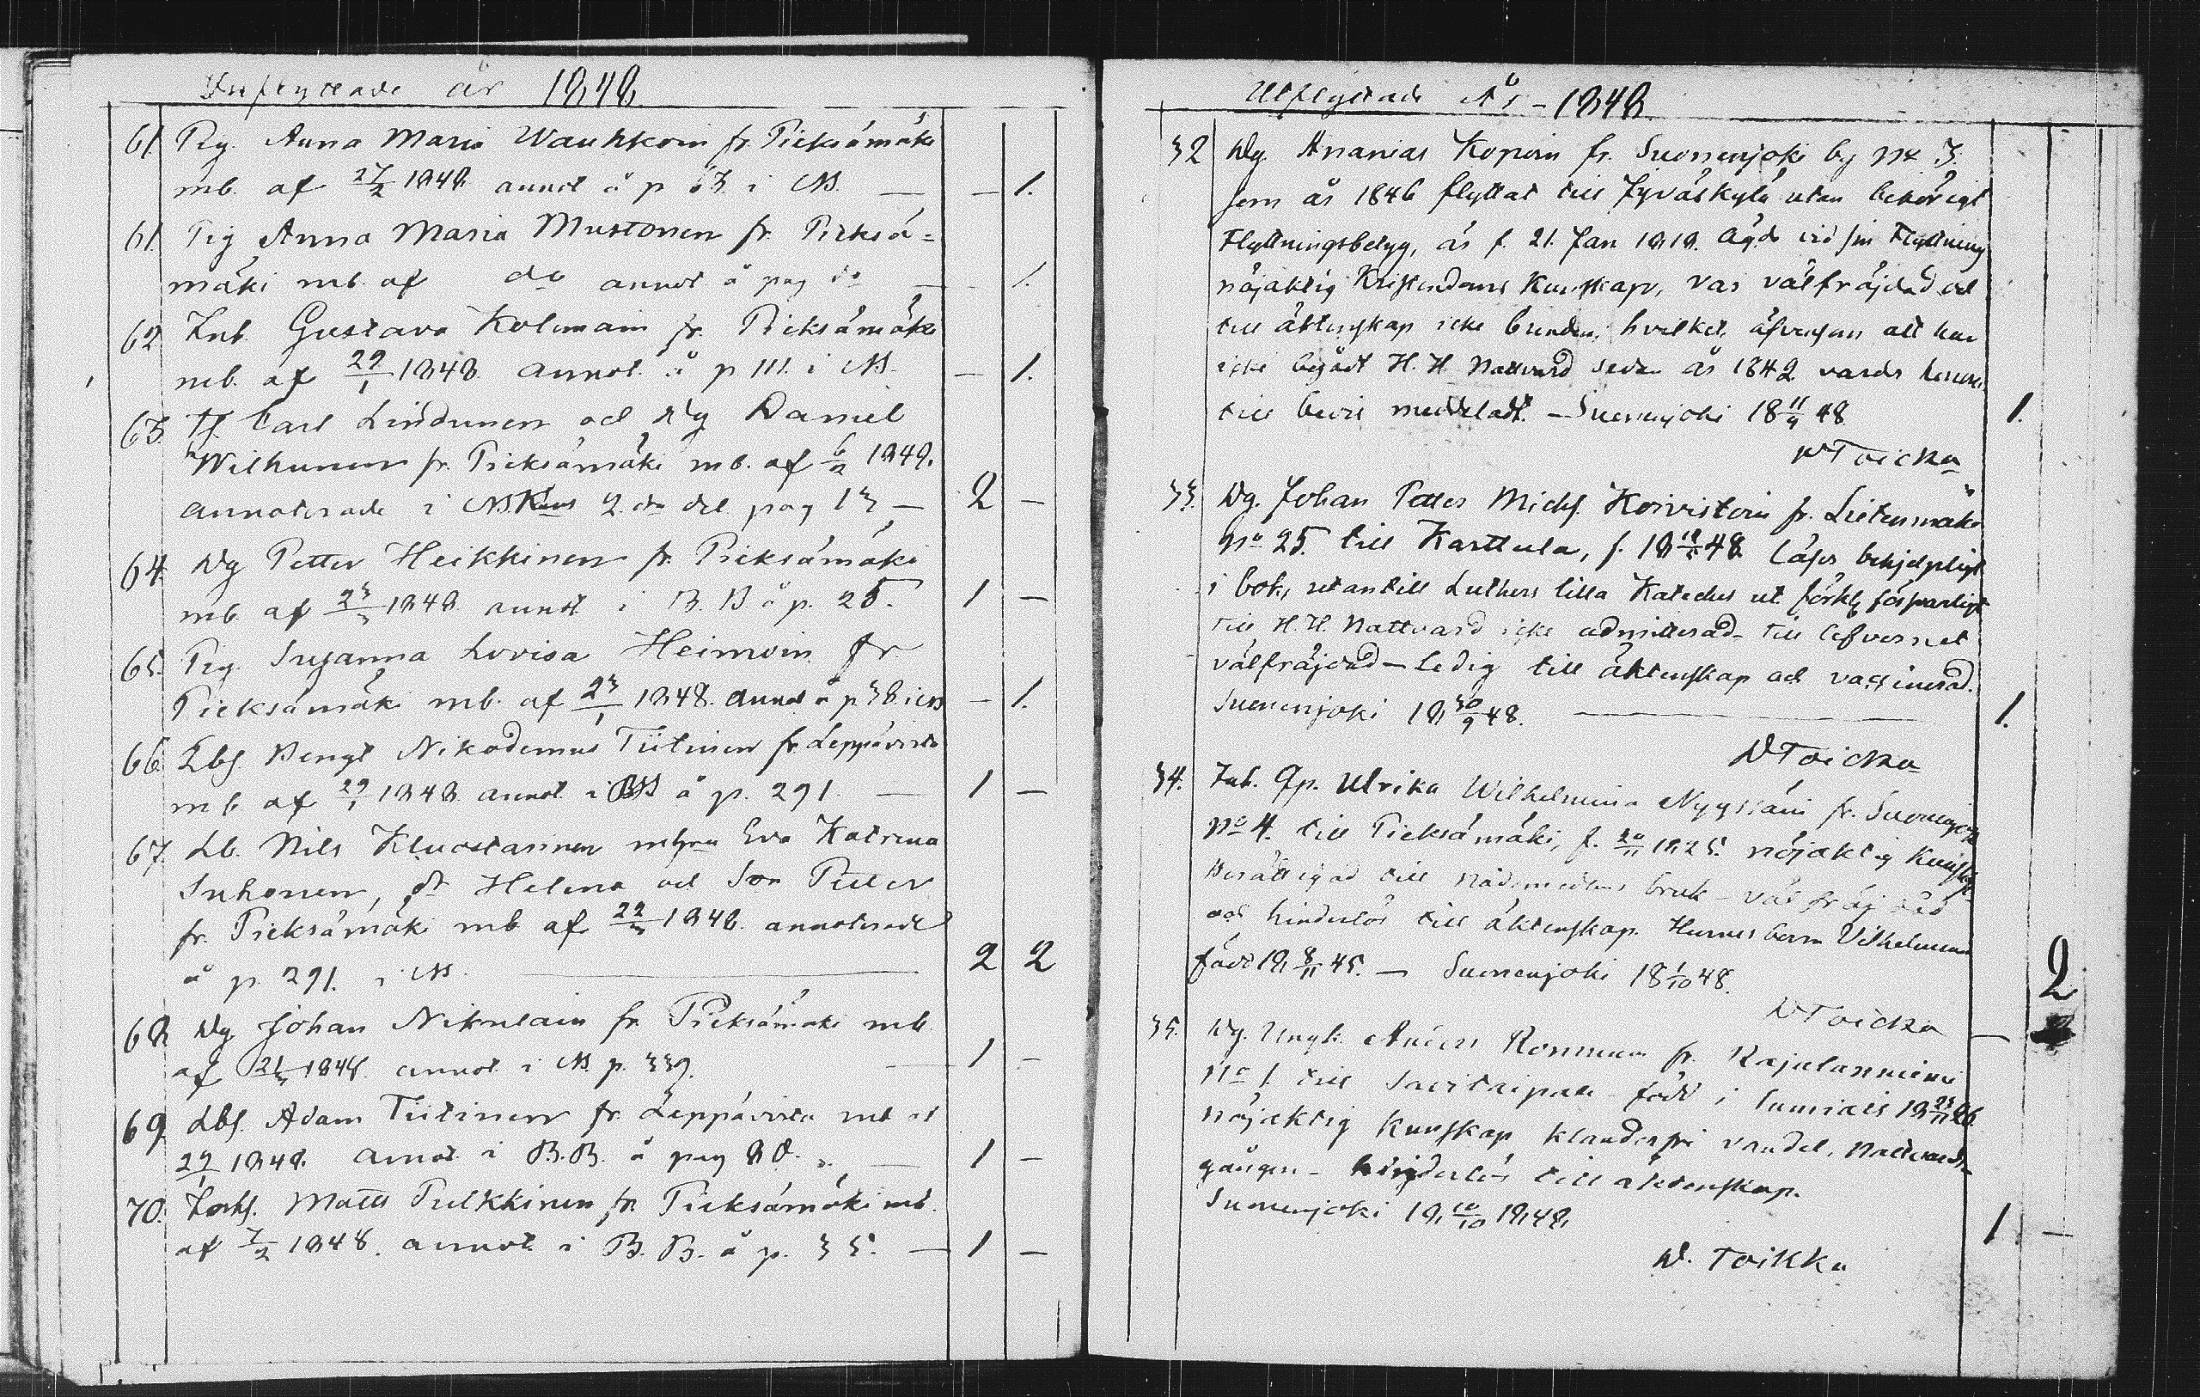 Inflyttade år 1848.
61 Pig. Anna Maria Wauhkoin fr. Pieksämäki
mb. af 27/2 1848. annot å p 63 i NB. — — 1.
61. Pig Anna Maria Mustonen fr. Pieksä=
mäki mb. af do annot å pag do — — 1.
62 Inh. Gustava Kolimain fr. Pieksämäki
mb. af 29/1 1848. annot. å p 111. i NB. — 1.
63. Carl Lindunen och Dg Daniel
Wilhunen fr. Pieksämäki mb. af 6/2 1848.
annoterade i 2. dra del pag 13 — 2 —
64. Dg Petter Heikkinen fr. Pieksämäki
mb af 1848 annot i B. B å p. 25. 1 —
65. Pig. Susanna Lovisa Heimoin fr
Pieksämäki mb. af 1848. annot å p 38 i — 1.
66. Lbs. Bengt Nikodemus Tiitinen fr. Leppävirta
mb af 29/1 1848 annot i å p. 291. — 1 —
67. Lb. Nils Kluostarinen m hru Eva Katrina
Suhonen, dr Helena och Son Petter
fr. Pieksämäki mb af 1848. annoterade
å p. 291. i NB. — 2 2
68 Dg Johan Nikulain fr. Pieksämäki mb
af 1848 annot i NB p. 339. — 1 —
69. Lbs. Adam Tiitinen fr Leppävirta mb af
29/1 1848. annot i B.B. å pag 80. — 1 —
70. Matts Pulkkinen fr. Pieksämäki mb.
af 7/2 1848. annot i B. B. å p. 35. — 1 —
Utflyttade År — 1848.
32 Dg. Ananias Kopoin fr. Suonenjoki by No 3.
som år 1846 flyttat till Jyväskylä utan behörigt
Flyttningsbetyg, är f. 21. Jan 1819. Ägde vid sin Flyttning
nöjaktig Kristendoms Kunskap, var välfräjdad och
till äktenskap icke bunden; hvilket, äfvensom att han
icke begått H. H. Nattvard sedan år 1842 varder
till bevis meddeladt. — Suonenjoki 18 11/9 48. 1.
D Toicka
33. Dg. Johan Petter Michs. Koivistoin fr. Lietenmäki
No 25. till Karttula, f. 18 48. Läser behjelpligt
i bok, utantill Luthers lilla Kateches ut. förkl. försvarligt
till H. H. Nattvard icke admitterad — till lefvernet
välfräjdad — Ledig till äktenskap och vaccinerad.
Suonenjoki 18 30/9 48. — 1.
D Toicka
34. Inh. Qp. Ulrika Wilhelmina Nygrsäin fr. Suonenjoki
No 4. till Pieksämäki, f. 20/11 1825. nöjaktig Kunskap
Berättigad till nådemedlens bruk — välfräjdad
och hinderlös till äktenskap. Hennes barn Vilhelmina
född 18 8/11 45. — Suonenjoki 18 1/10 48. 2
D Toicka
35. Dg. Ungk. Anders Ronnunen fr. Rajalanniemi
No 1. till Savitaipale född i Sumiais 18
nöjaktig Kunskap klanderfri vandel, nattvards-
gången — hinderlös till äktenskap.
Suonenjoki 18 10/10 1848. 1 —
D. Toikka